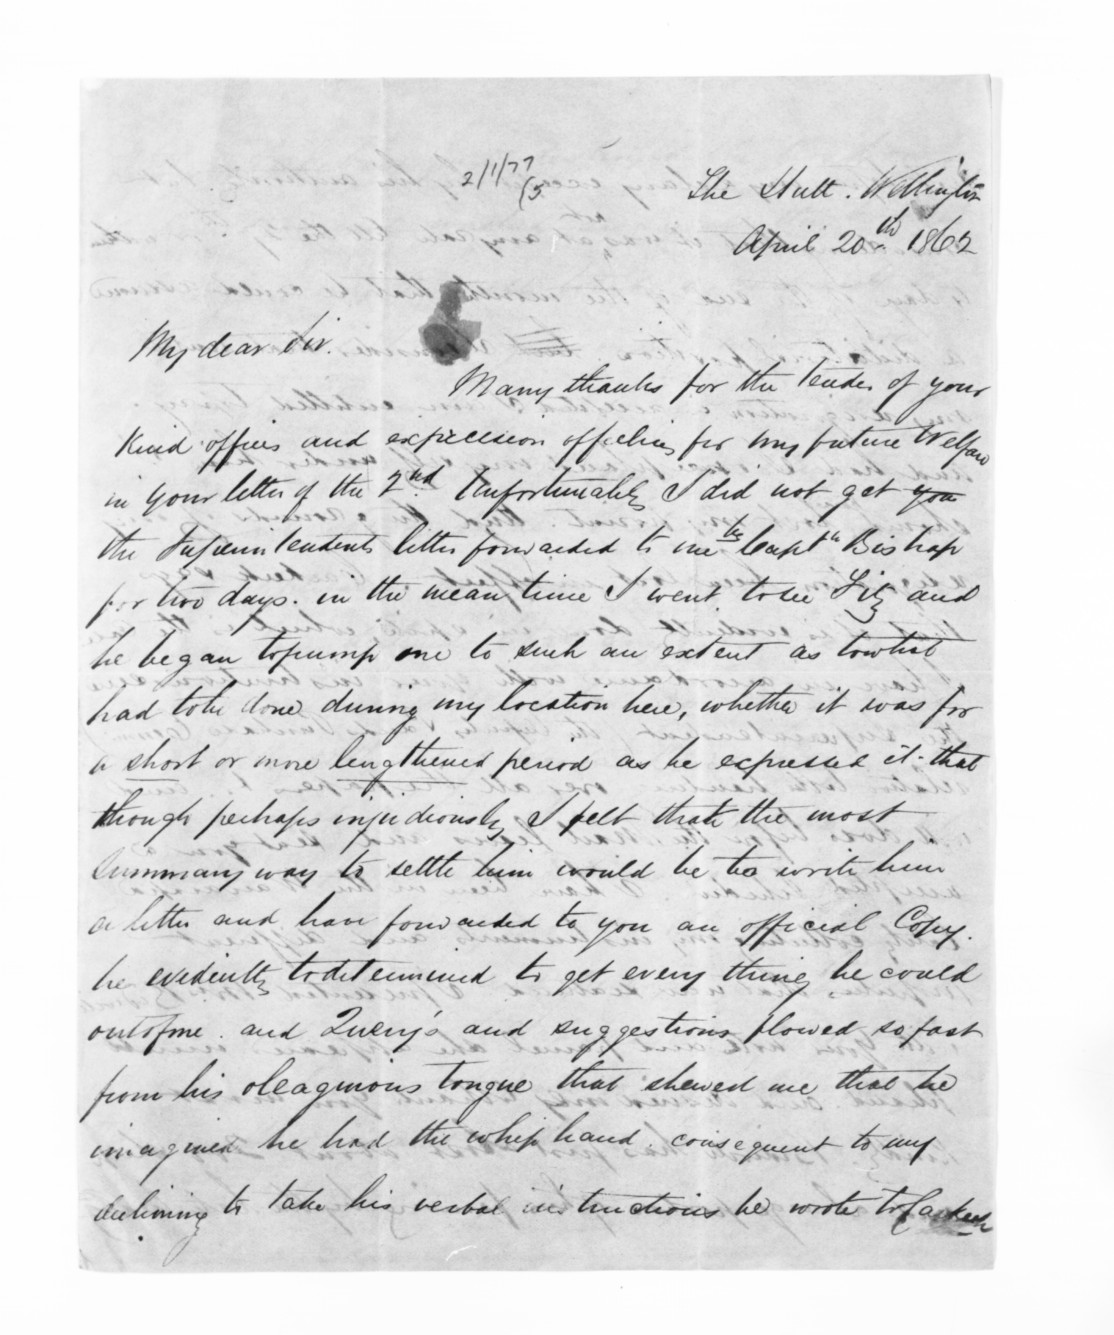 2/1/77
(5
The Hutt. Wellington
April 20th 1862
My dear Sir.
Many thanks for the tender of your
kind offices and expression of feeling for my future Welfare
in your letter of the 2nd. Unfortunately I did not get you
the Superintendents letter forwarded to me by Captn Bishop
for two days. in the mean time I went to see Fitz and
he began to pump me to such an extent as to what
had to be done during my location here, whether it was for
a short or more lengthened period as he expressed it - that
though perhaps injudiciously I felt that the most
Summary way to settle him would be to write him
a letter and have forwarded to you an official Copy.
he evidently determined to get every thing he could
out of me. and Query's and suggestions flowed so fast
from his oleaginous tongue that shewed me that he
imagined he had the whip hand. consequent to my
declining to take his verbal instructions he wrote to